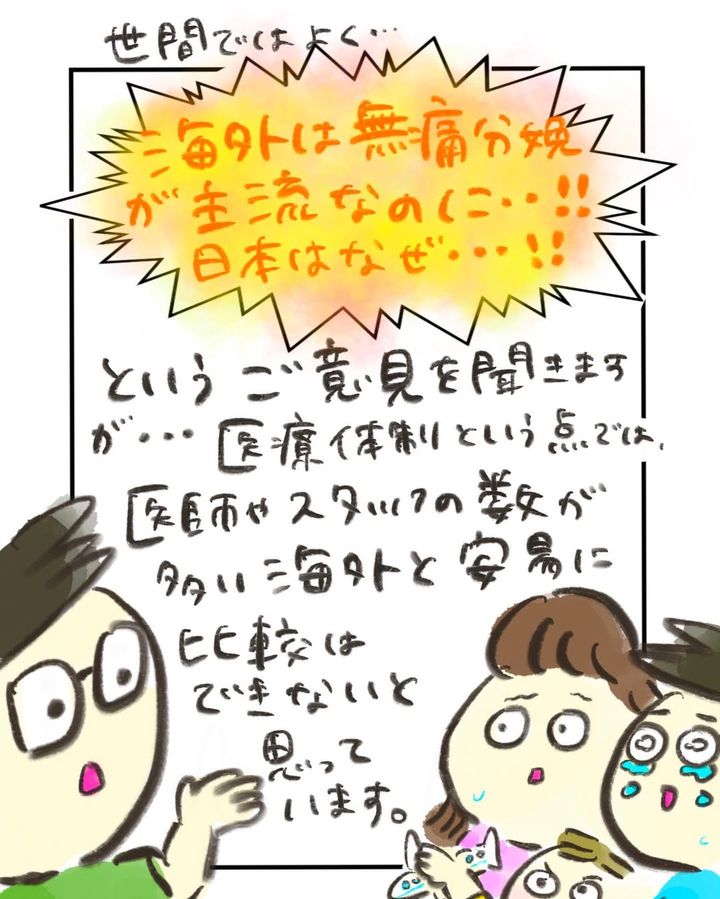 世間ではよく…
海外は無痛分娩
が主流なのに…!!
日本はなぜ…!!
というご意見を聞きます
が…医療体制という点では、
医師やスタッフの数が
多い海外と安易に
比較は
できないと
思って
います。